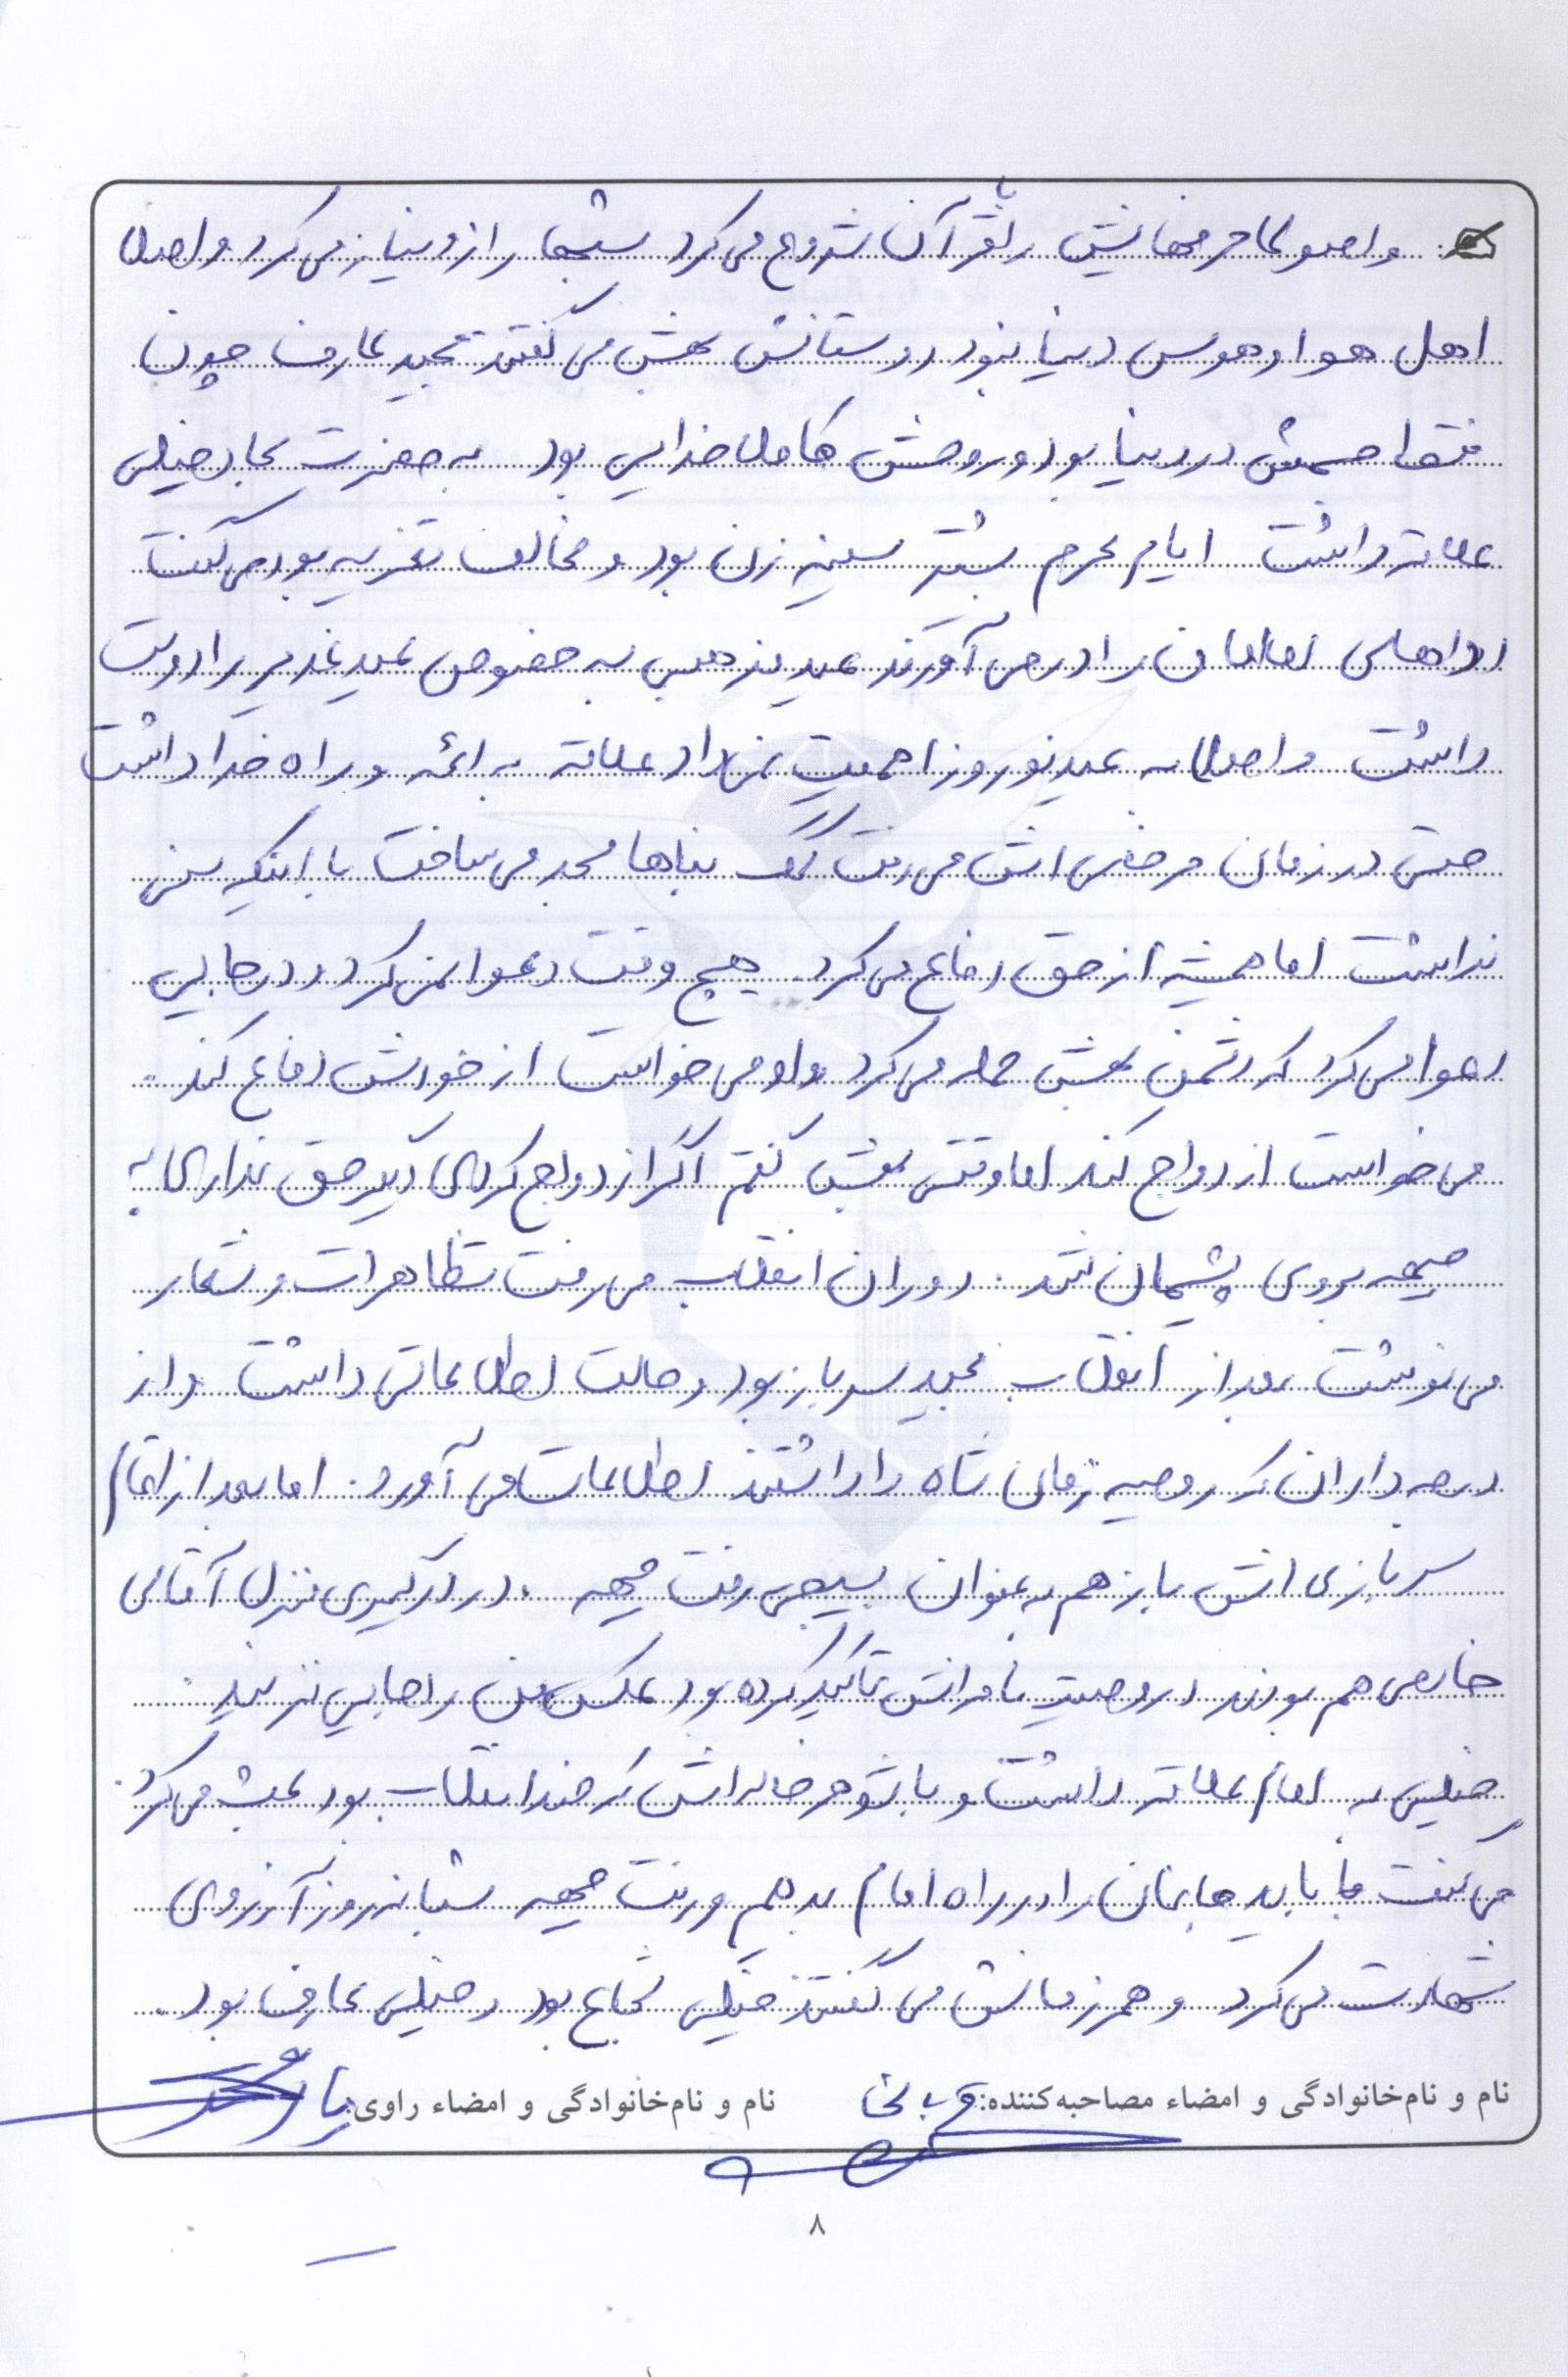 و اصولا حرفهایش را با قرآن شروع می کرد شبها راز و نیاز می کرد و اصلا
اهل هوا و هوس دنیا نبود دوستانش بهش می گفتند مجید عارف چون
فقط جسمش در دنیا بود و روحش کاملا خدایی بود به حضرت سجاد خیلی
علاقه داشت ایام محرم بیشتر سینه زن بود و مخالف تعزیه بود می گفت
ادا های امامان را در می آورند عید مذهبی به خصوص عید غدیر را دوست
داشت و اصلا به عید نوروز اهمیت نمی داد علاقه به ائمه و راه خدا داشت
حتی در زمان مرخصی اش می رفت کمک بناها مسجد می ساخت با اینکه سنی
نداشت اما همیشه از حق دفاع می کرد. هیچ وقت دعوا نمی کرد و در جایی
دعوا می کرد که دشمن بهش حمله می کرد و او می خواست از خودش دفاع کند..
می خواست ازدواج کند اما وقتی بهش گفتم اگر ازدواج کردی دیگر حق نداری به
جبهه بروی پشیمان شد. دوران انقلاب می رفت تظاهرات و شعار
می نوشت بعد از انقلاب مجید سرباز بود و حالت اطلاعاتی داشت و از
درجه داران که روحیه زمان شاه را داشتند اطلاعات می آورد. اما بعد از اتمام
سربازی اش باز هم به عنوان بسیجی رفت جبهه. در درگیری منزل آقای
خادمی هم بودند در وصیت نامه اش تاکید کرده بود عکس من را جایی نزنید.
خیلی به امام علاقه داشت و با شوهر خاله اش که ضد انقلاب بود بحث می کرد.
می گفت ما باید جانمان را در راه امام بدهیم و رفت جبهه شبانه روز آرزوی
شهادت می کرد و همرزمانش می گفتند خیلی شجاع بود و خیلی عارف بود.
نام و نام‌خانوادگی و امضاء مصاحبه‌کننده: نام و نام‌خانوادگی و امضاء راوی:
۸